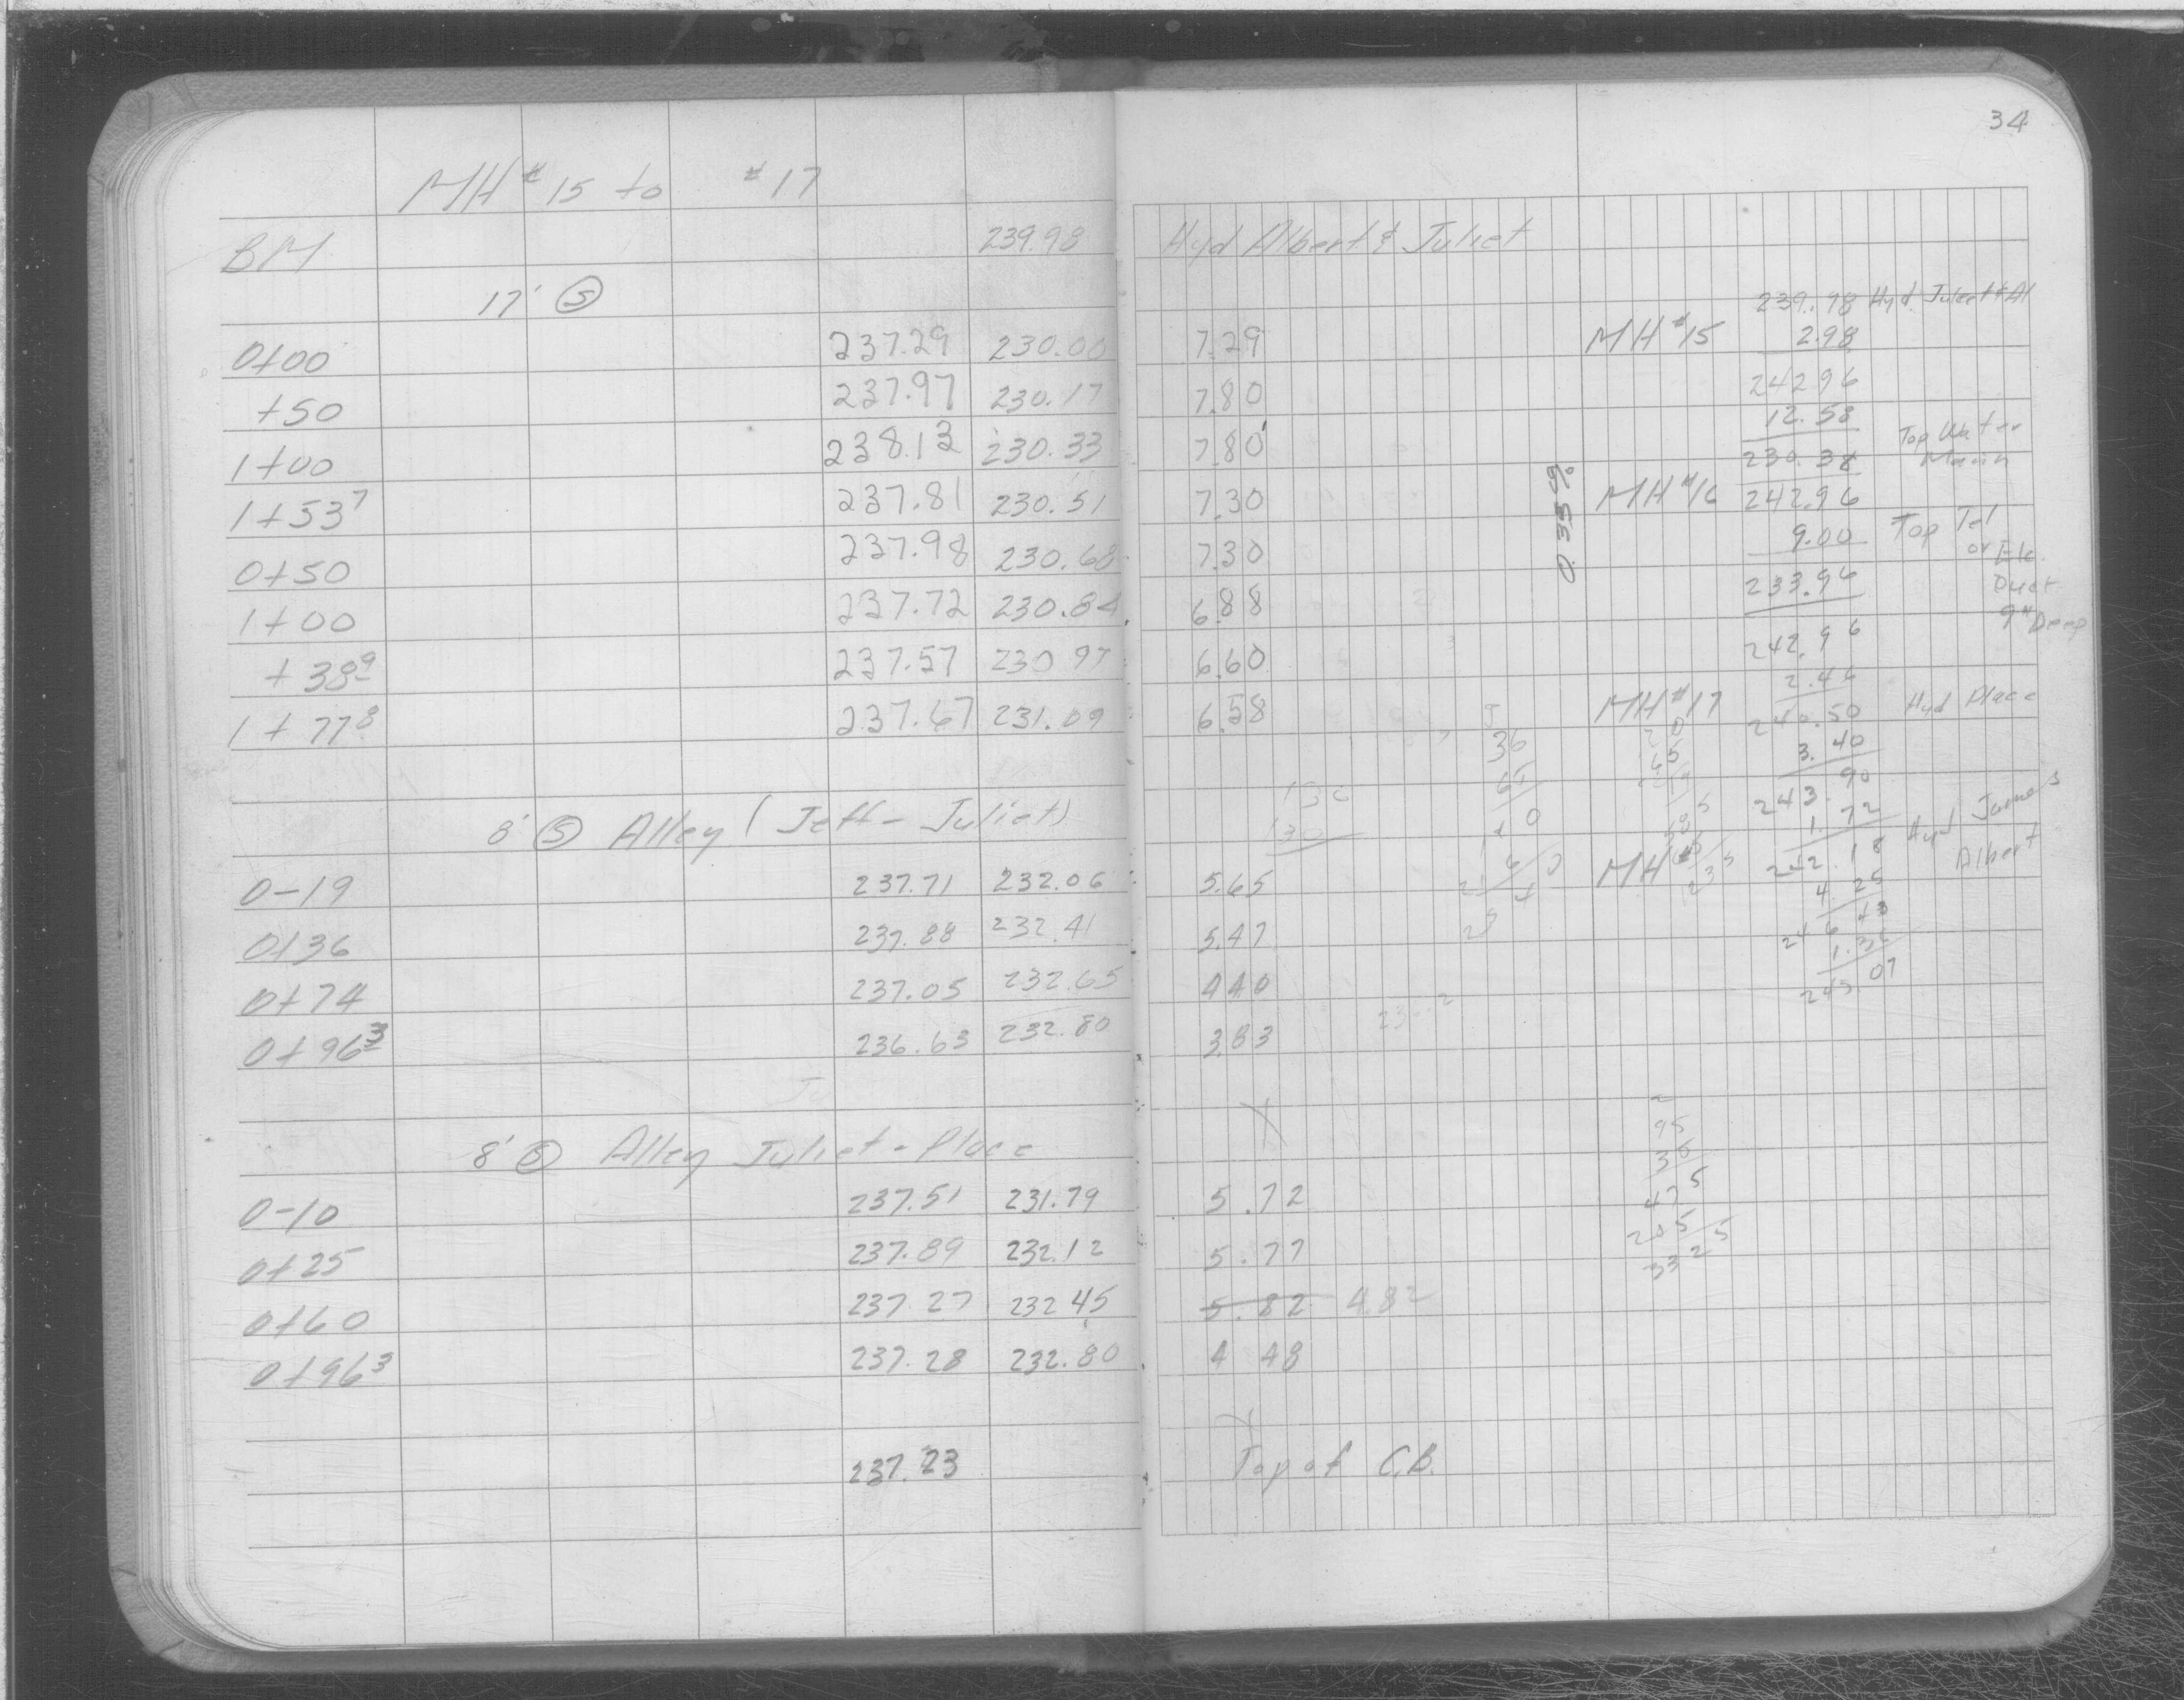 34
MH # 15 to # 17
BM 239.98 Hyd Albert & Juliet
17' Ⓢ
0+00 237.29 230.00 7.29
+50 237.97 230.17 7.80
1+00 238.13 230.33 7.80
1+53⁷ 237.81 230.51 7.30
0+50 237.98 230.68 7.30
1+00 237.72 230.84 6.88
+38⁹ 237.57 230 97 6.60
1+77⁸ 237.67 231.09 6.58
8' Ⓢ Alley (Jeff - Juliet)
0-19 237.71 232.06 5.65
0+36 237.88 232.41 5.47
0+74 237.05 232.65 4.40
0+96³ 236.63 232.80 3.83
8' Ⓢ Alley Juliet - Place
0-10 237.51 231.79 5.72
0+25 237.89 232.12 5.77
0+60 237.27 232 45 5.82 4.82
0+96³ 237.28 232.80 4 48
237.23 Top of C.B.
0.35%
239.98 Hyd. Juliet & Al
MH # 15 2.98
242 96
12.58
230.38 Top Water
Main
MH # 16 242.96
9.00 Top Tel
or Ele.
233.96 Duct
9" Deep
242.96
2.46
MH # 17 240.50 Hyd Place
3.40
243.90
1.72
MH # 242.18 Hyd James
Albert
4.25
246 43
1.36
245 07
36
65
95
35
475
285
3325